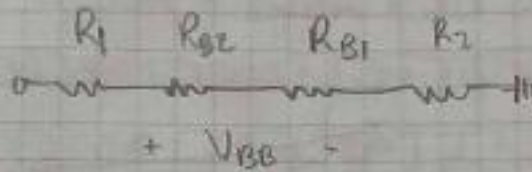 R1 RB2 RB1 R2
+ VBB -